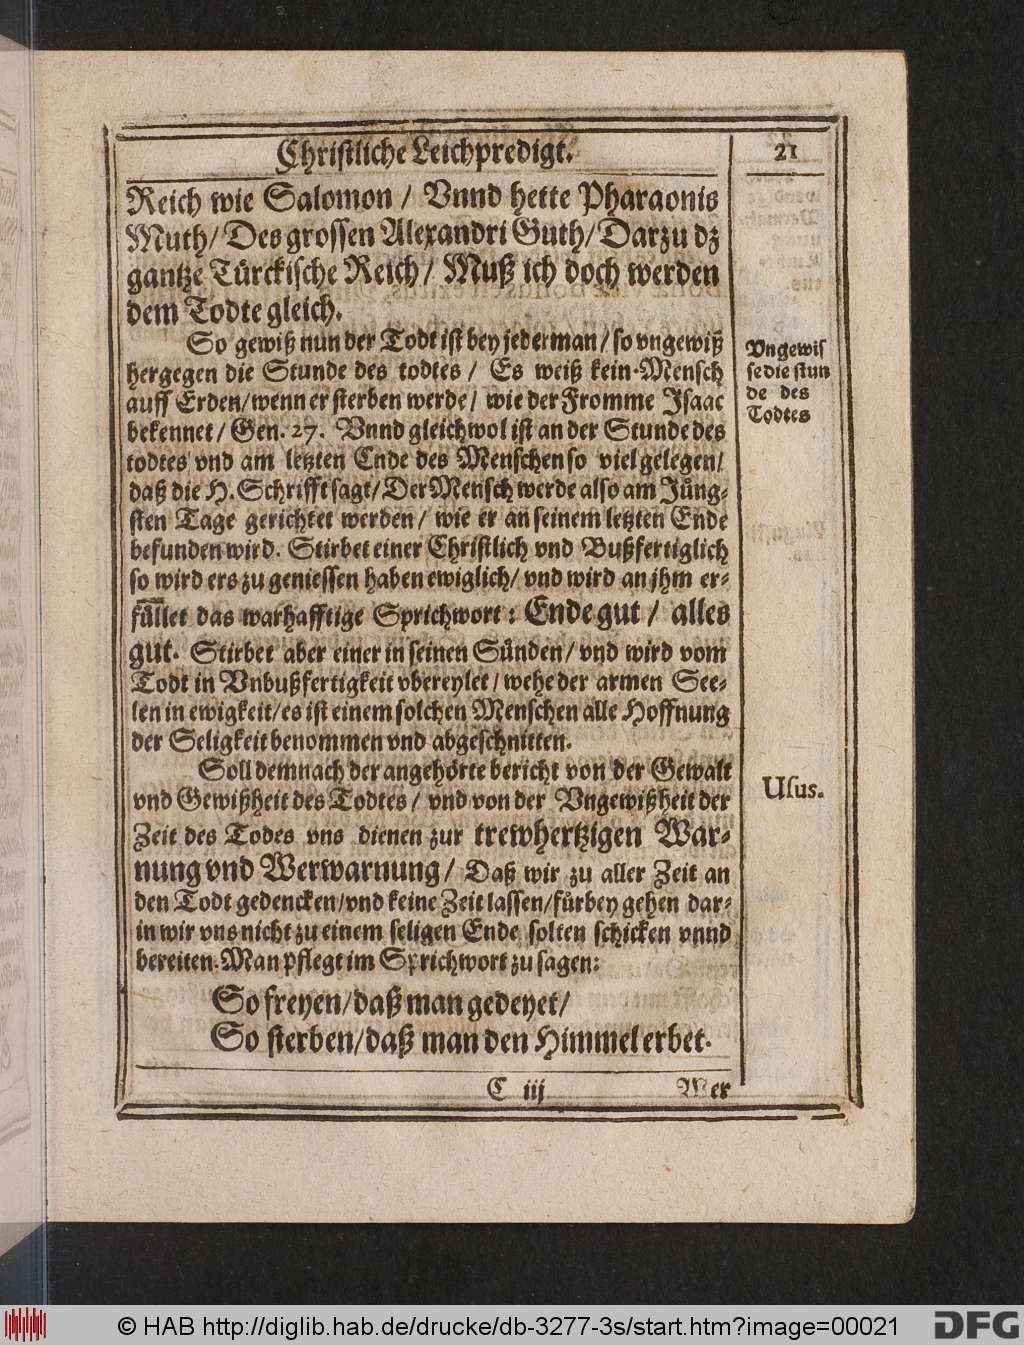 Christliche Leichpredigt.
21
Reich wie Salomon / Vnnd hette Pharaonis
Muth / Des grossen Alexandri Guth / Darzu dz
gantze Türckische Reich / Muß ich doch werden
dem Todte gleich.
So gewiß nun der Todt ist bey jederman / so vngewiß
hergegen die Stunde des todtes / Es weiß kein Mensch
auff Erden / wenn er sterben werde / wie der Fromme Isaac
bekennet / Gen. 27. Vnnd gleichwol ist an der Stunde des
todtes vnd am letzten Ende des Menschen so viel gelegen /
daß die H. Schrifft sagt / Der Mensch werde also am Jüng-
sten Tage gerichtet werden / wie er an seinem letzten Ende
befunden wird. Stirbet einer Christlich vnd Bußfertiglich
so wird ers zu geniessen haben ewiglich / vnd wird an jhm er-
füllet das warhafftige Sprichwort: Ende gut / alles
gut. Stirbet aber einer in seinen Sünden / vnd wird vom
Todt in Vnbußfertigkeit vbereylet / wehe der armen See-
len in ewigkeit / es ist einem solchen Menschen alle Hoffnung
der Seligkeit benommen vnd abgeschnitten.
Soll demnach der angehörte bericht von der Gewalt
vnd Gewißheit des Todtes / vnd von der Vngewißheit der
Zeit des Todes vns dienen zur trewhertzigen War-
nung vnd Verwarnung / Daß wir zu aller Zeit an
den Todt gedencken / vnd keine Zeit lassen / fürbey gehen dar-
in wir vns nicht zu einem seligen Ende solten schicken vnnd
bereiten. Man pflegt im Sprichwort zu sagen:
So freyen / daß man gedeyet /
So sterben / daß man den Himmel erbet.
C iij
Wer
Vngewis
se die stun
de des
Todtes
Usus.
© HAB http://diglib.hab.de/drucke/db-3277-3s/start.htm?image=00021
DFG